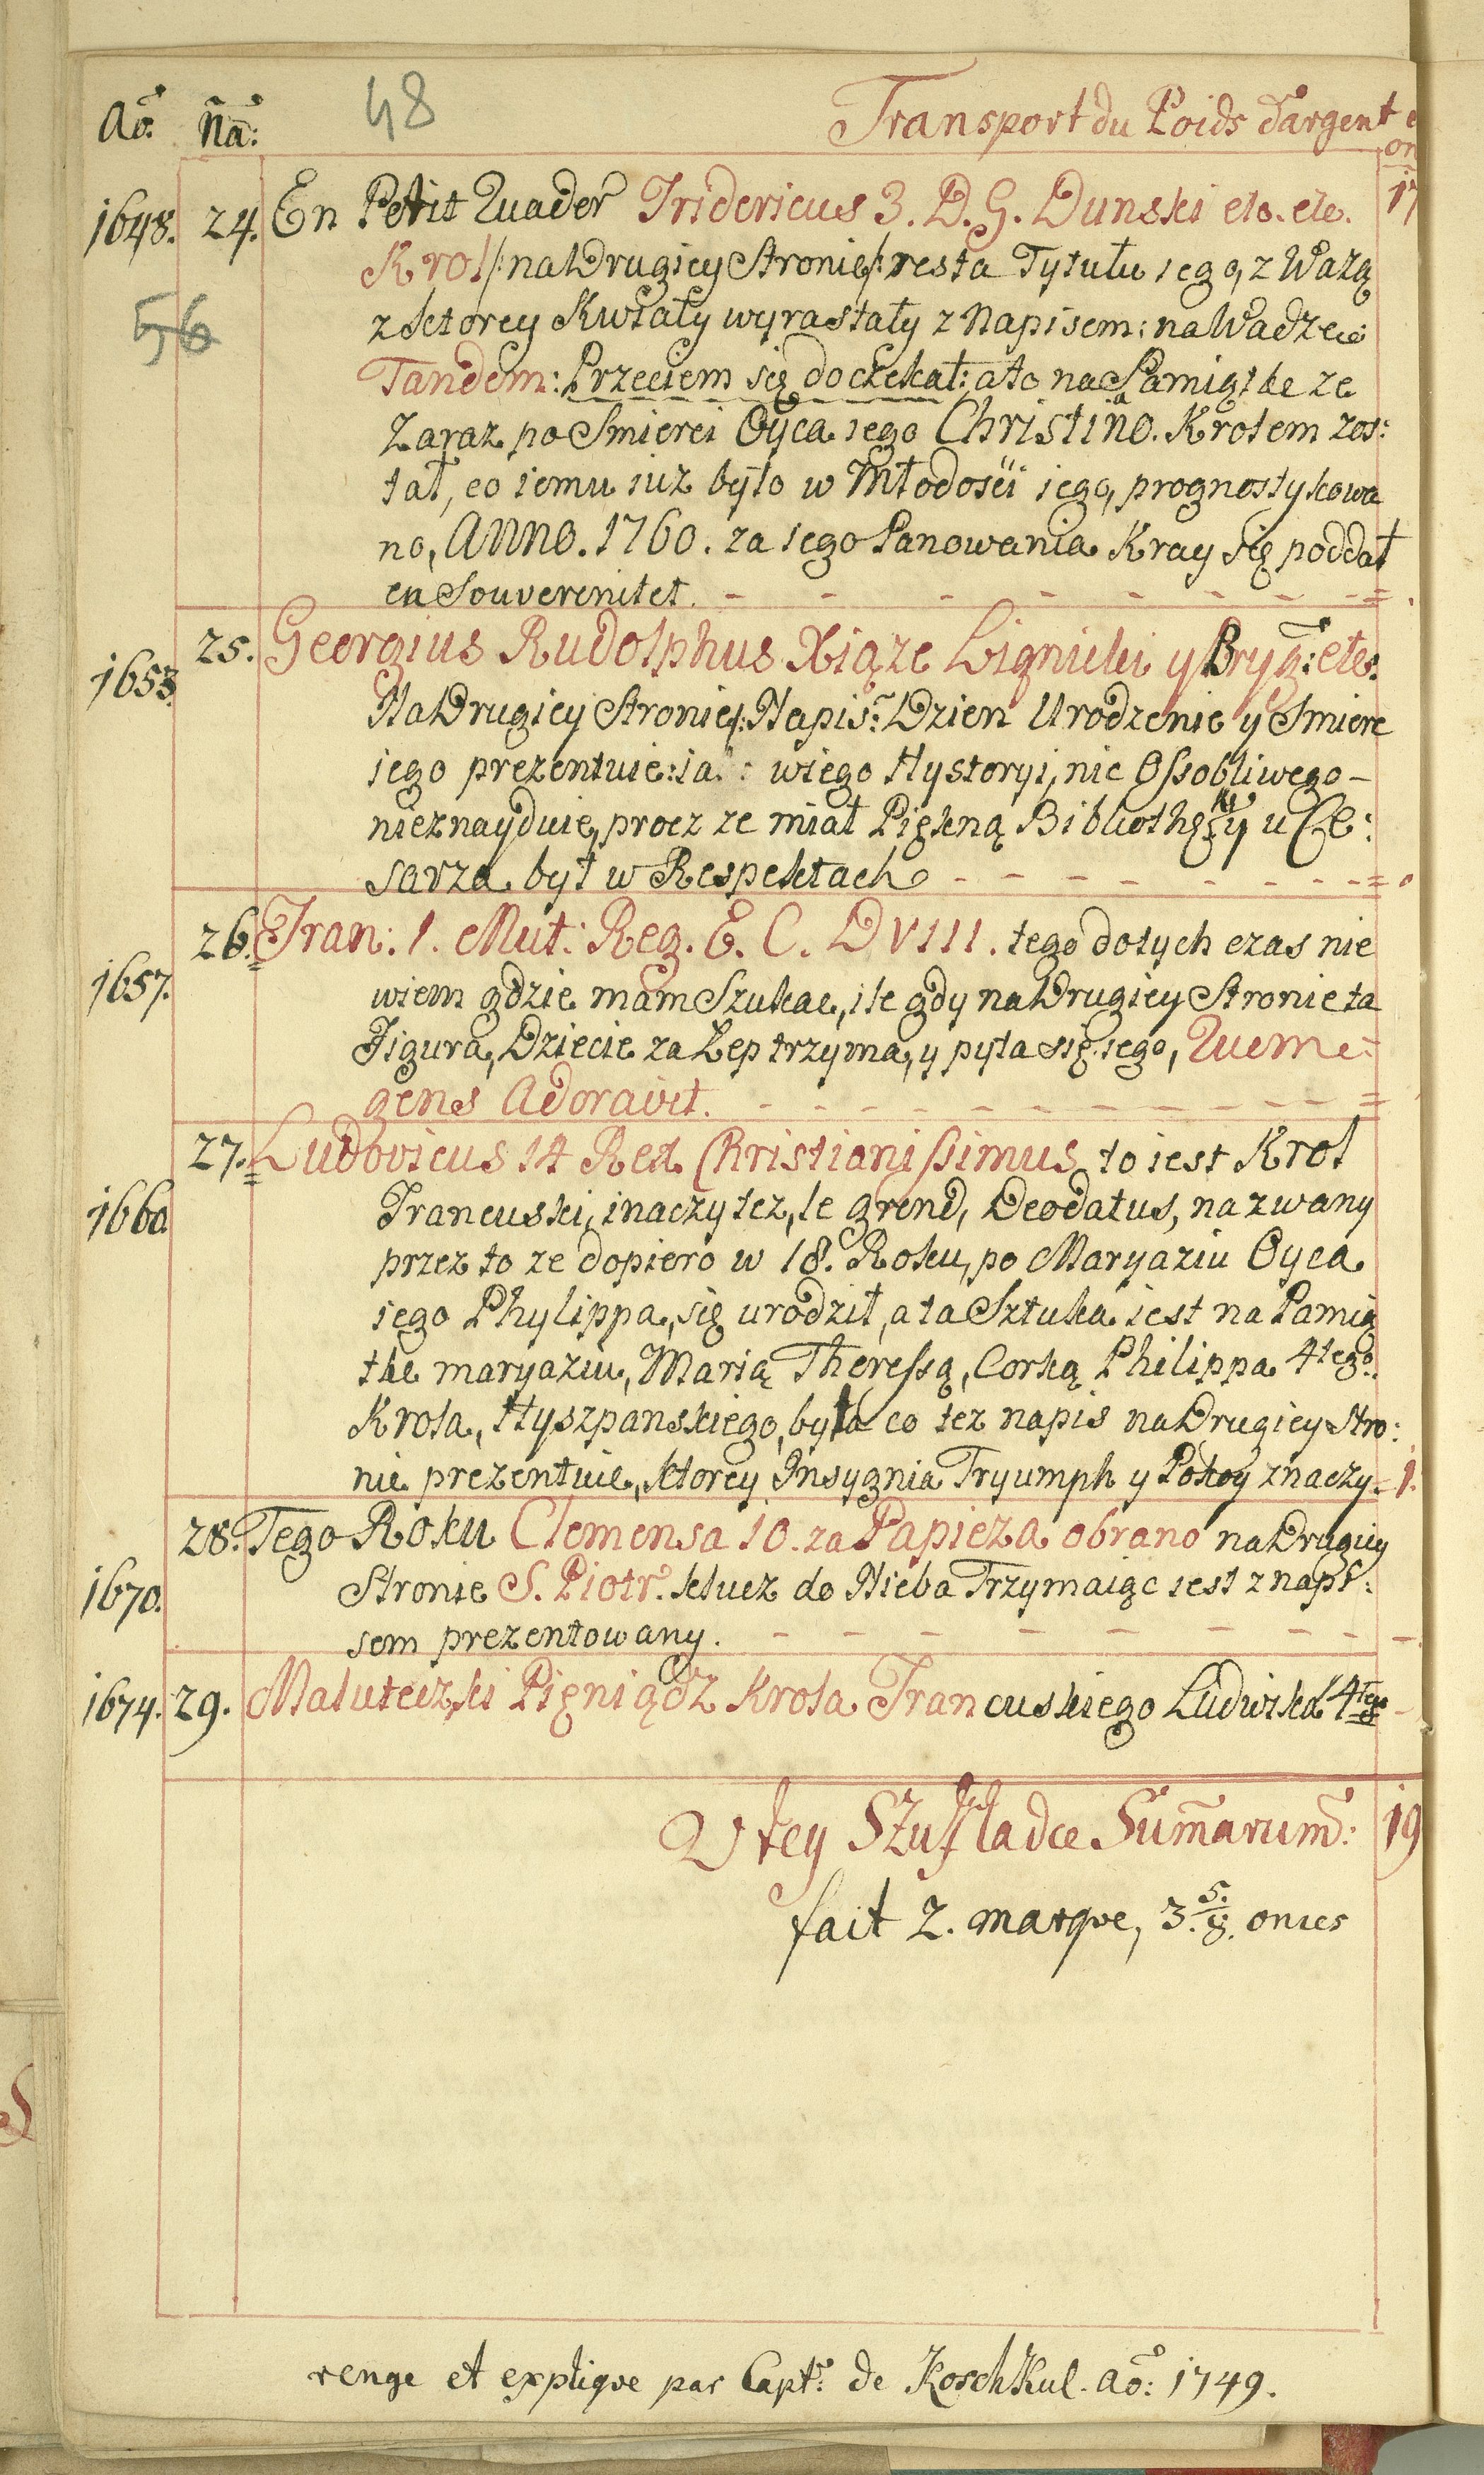 Ao: Na: 48 Transport du Poids d'argent
on
1648. 24. En Petit Quader Fridericus 3. D. G. Dunski etc. etc. 17
Krol /: na Drugiey Stronie/: resta Tytułu iego, z Wazą
56 z ktorey Kwiaty wyrastały z Napisem: na Wadzeie
Tandem: Przeciem się doczekał: a to na Pamiątke ze
Zaraz po Smierci Oyca iego Christiäno. Krolem zos:
tał, co iemu iuz było w Młodosci iego, prognostykowa
no, Anno. 1760. za iego Panowania Kray się poddał
en Souverenitet. - - - - - - - - =
1653. 25. Georgius Rudolphus Xiąze Lignicki y Bryg: etc.
Na Drugiey Stronie/: Napis: Dzien Urodzenie y Smierc
iego prezentuie: ia : w iego Hystoryi, nic Ossobliwego -
nieznayduie, procz ze miał Piękną Bibliothęky u Ce:
sarza był w Respektach - - - - - - - =
1657. 26. Fran: 1. Mut: Reg. E. C. D VIII. tego dotych czas nie
wiem gdzie mam Szukac, ile gdy na Drugiey Stronie ta
Figura, Dziecie za Łep trzyma, y pyta się iego, Quem e:
gens Adoravit. - - - - - - - - =
1660 27. Ludovicus 14 Rex Christianissimus to iest Krol
Francuski, inaczy tez, le grend, Deodatus, nazwany
przez to ze dopiero w 18. Roku, po Maryaziu Oyca
iego Phylippa, się urodził, a ta Sztuka iest na Pamią
tke maryaziu, Marią Theressą, Corką Philippa 4tego.
Krola, Hyszpanskiego, była co tez napis na Drugiey Stro:
nie prezentuie, ktorey Insygnia Tryumph y Pokoy znaczy = 1.
1670. 28. Tego Roku Clemensa 10. za Papieza obrano na Drugiey
Stronie S. Piotr. klucz do Nieba Trzymaiąc iest z napi:
sem prezentowany. - - - - - - - -
1674. 29. Maluteczki Pięniądz Krola Francuskiego Ludwika 14tego -
W tey Szufladce Sumarum: 19
fait 2. marque, 3. 5/8. onces
renge et explique par Capt: de Koschkul. Ao: 1749.